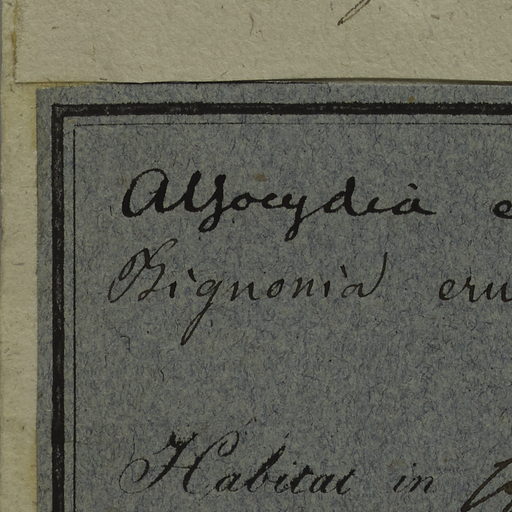 Alsocydia e
Bignonia eru
Habitat in